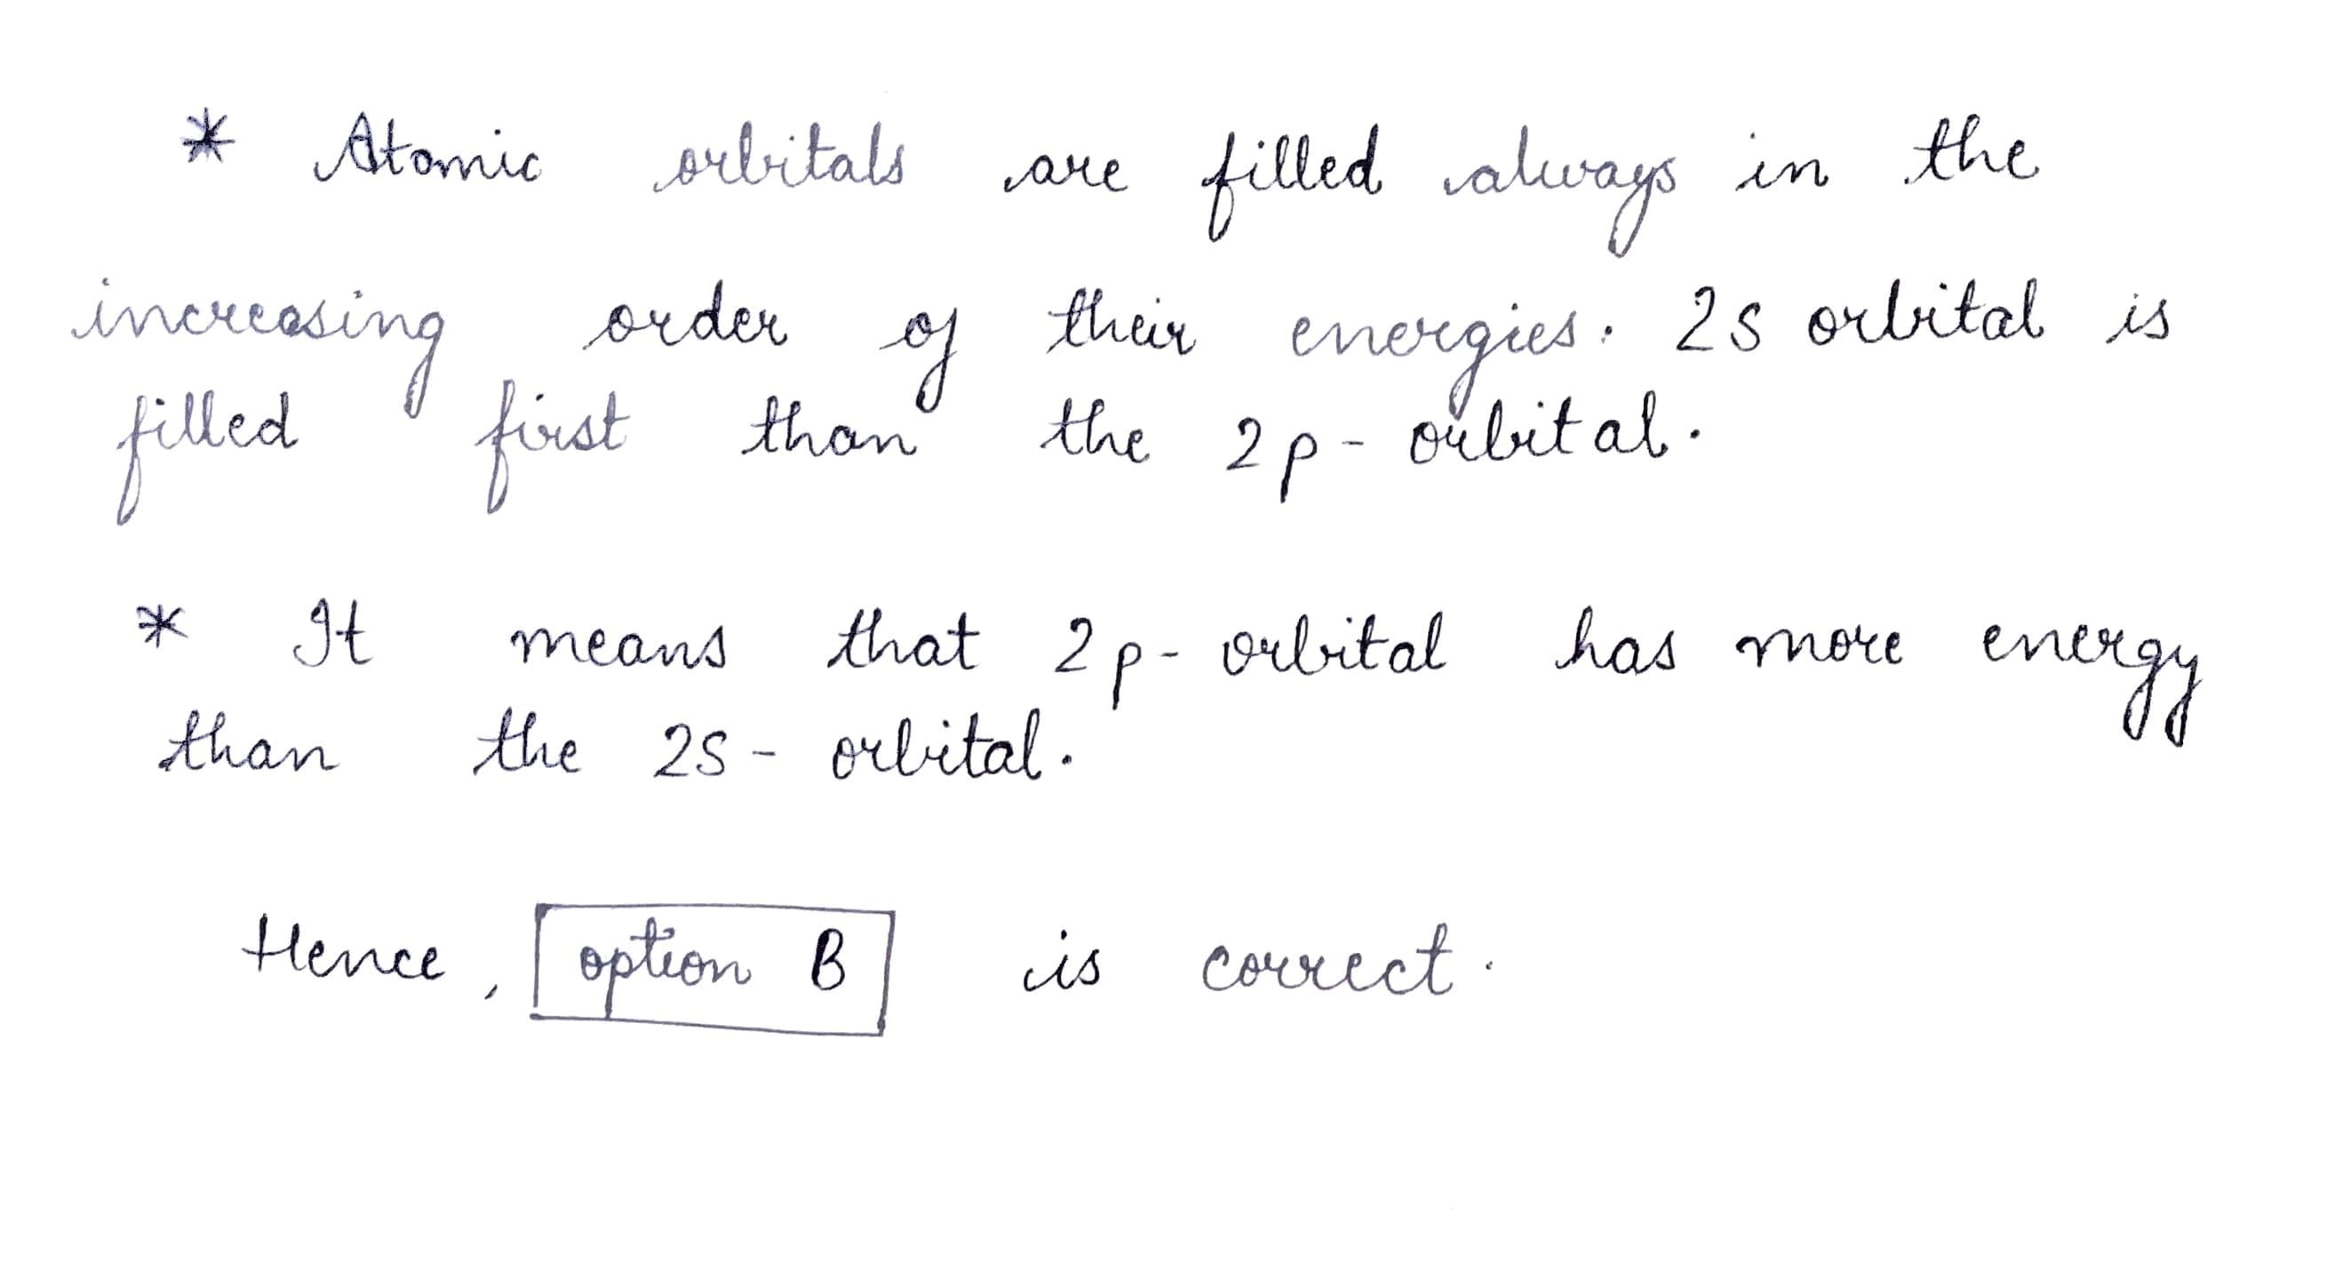 * Atomic orbitals are filled always in the
increasing order of their energies. 2s orbital is
filled first than the 2p- orbital.
* It means that 2p- orbital has more energy
than the 2s- orbital.
Hence, option B is correct.